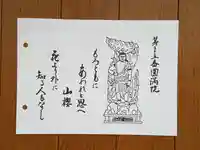 圓満院
もろともに
あわれと思へ
山櫻
花より外に
知る人もなし